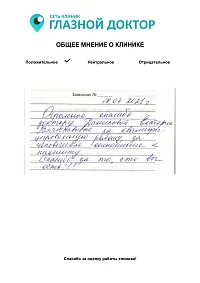 СЕТЬ КЛИНИК
ГЛАЗНОЙ ДОКТОР
ОБЩЕЕ МНЕНИЕ О КЛИНИКЕ
Положительное ✓ Нейтральное Отрицательное
Заявление №
18.04 2023 г
Огромное спасибо
доктору Даниловой Виктории
за квалифи-
цированную работу за
человеческое отношение к
пациенту.
Спасибо за то, что вы
есть!!!
Спасибо за оценку работы клиники!